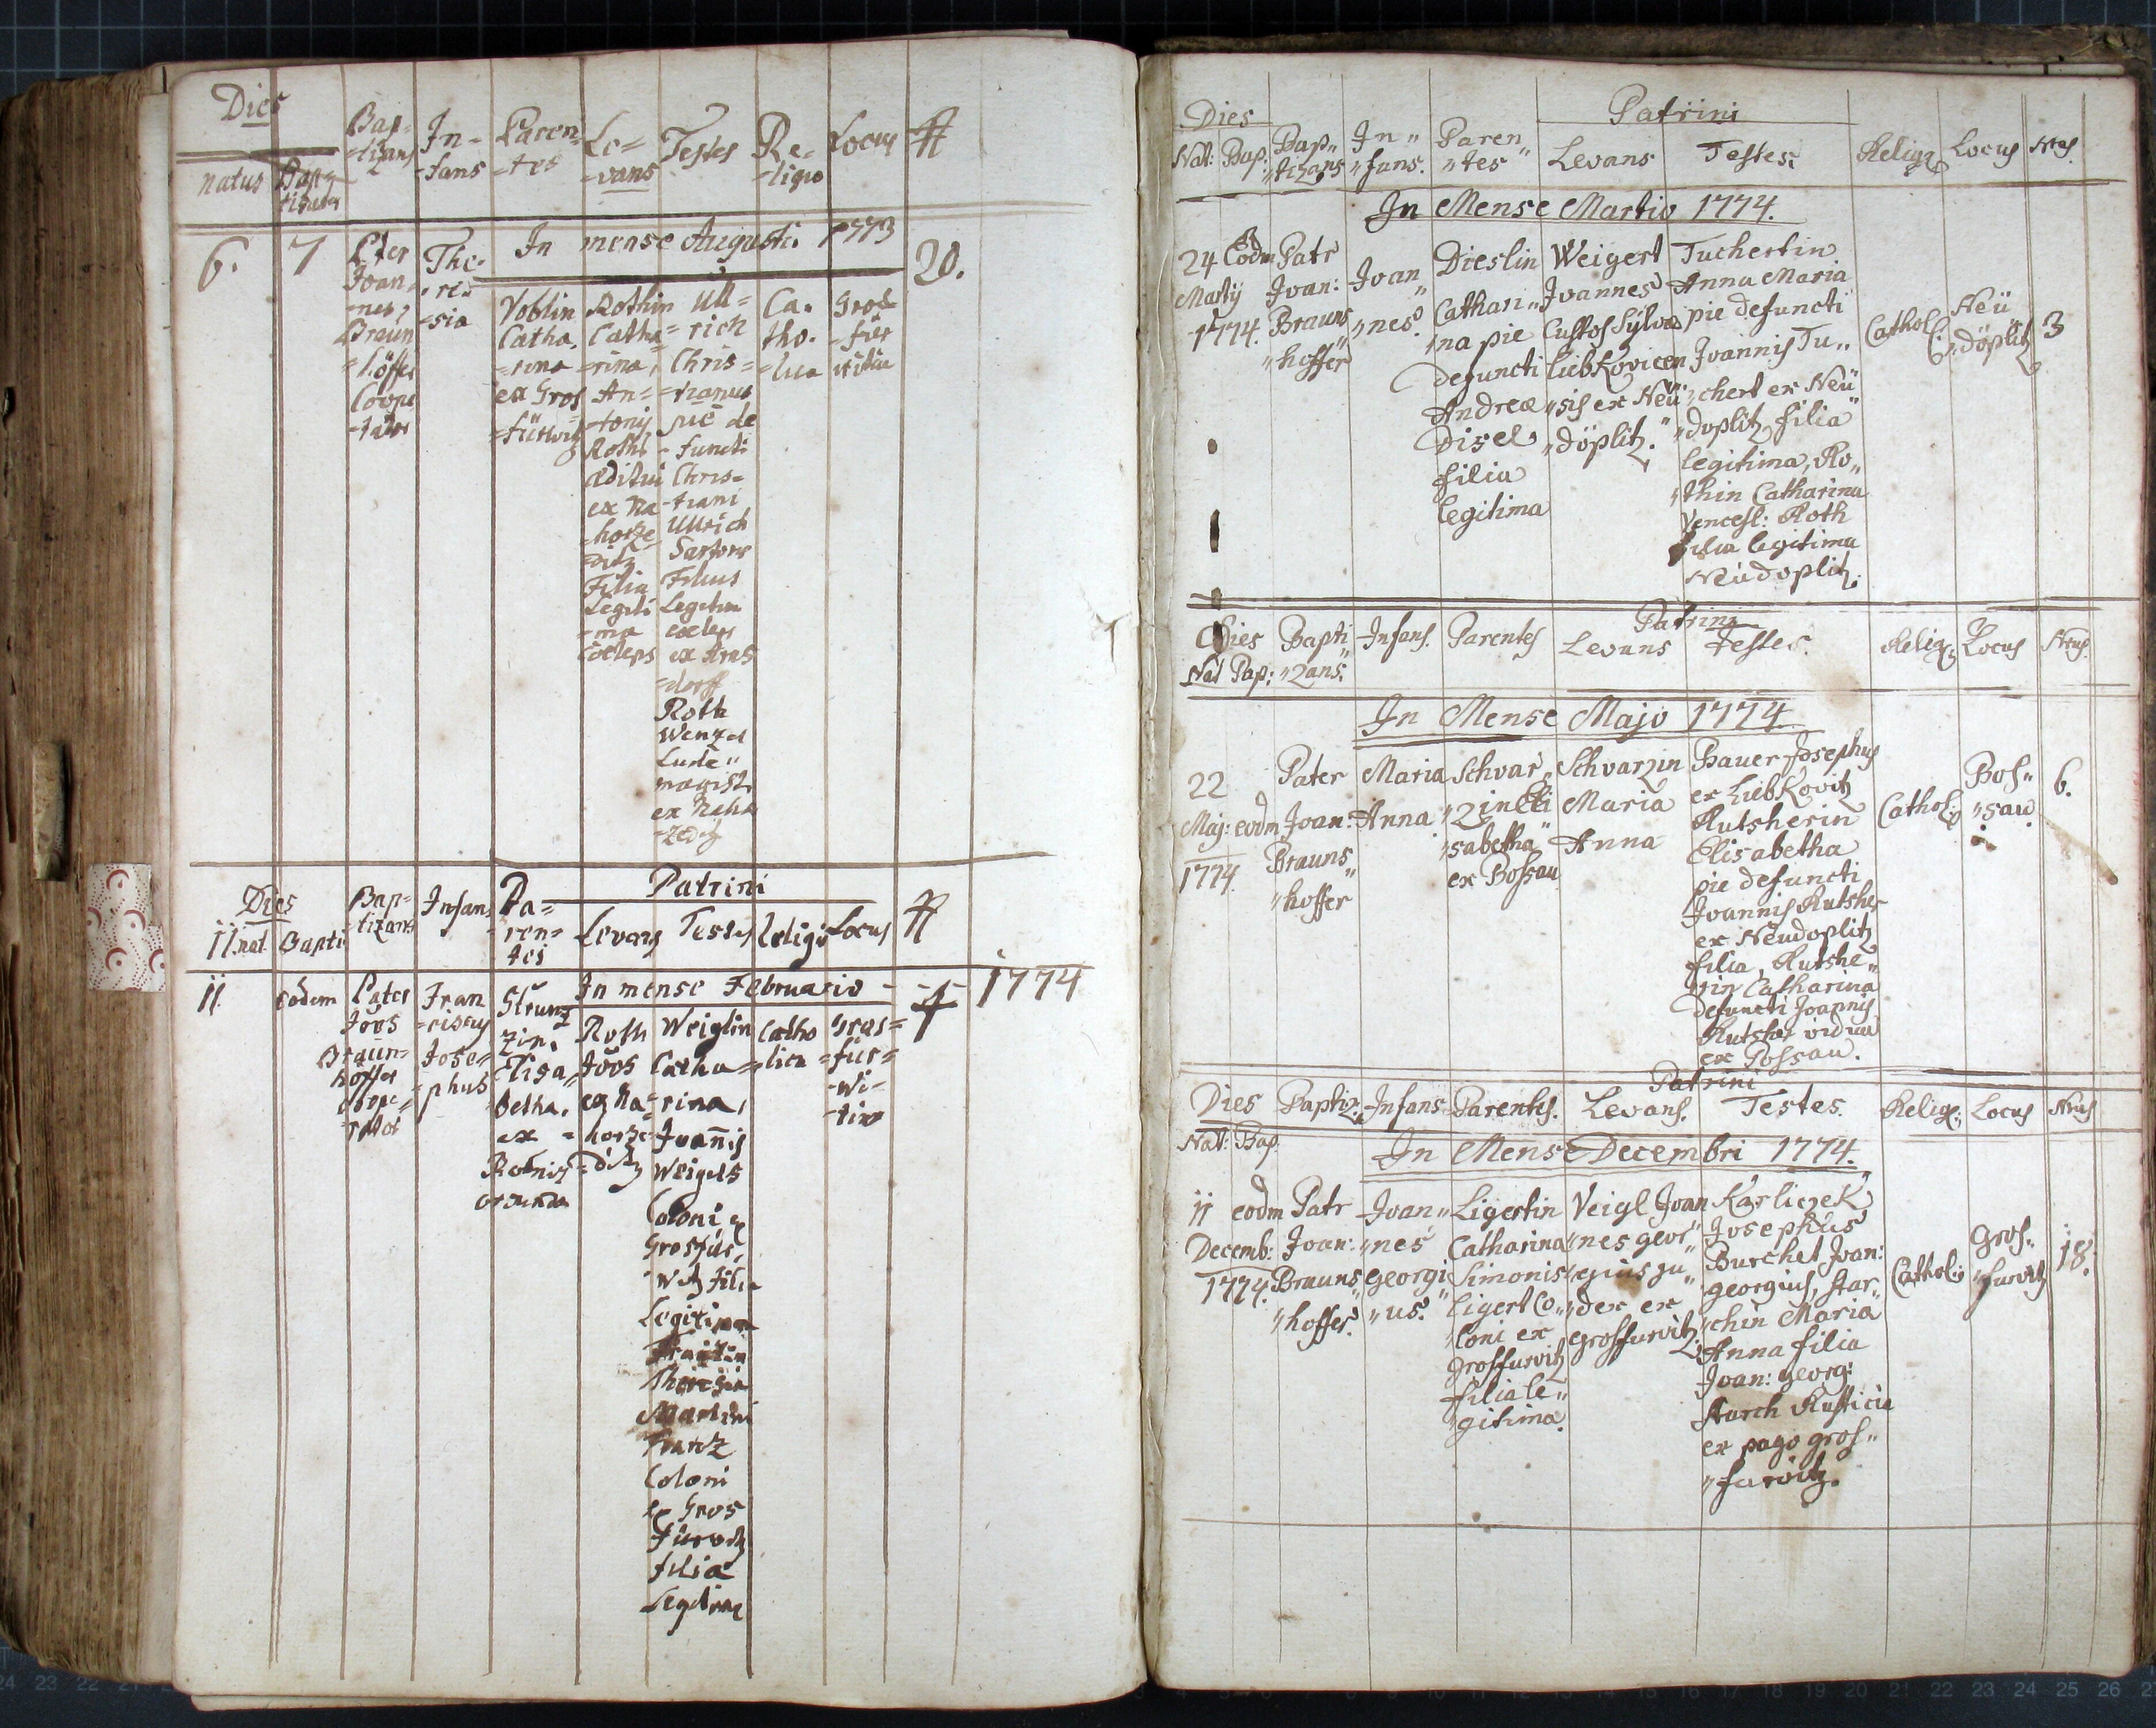 Dies
natus
Bap-
-tizans
In-
-fans
Paren-
-tes
Le=
-vans
Testes
Re-
-ligio
Locus
In mense Augusti 1773
6.
7
Joan=
-nes,
Braun
=höffer
Coope
-rator
The-
-re-
-sia
Voblin
Catha.
=rina
ex Gros
=fürwitz
Rothin
Catha=
=rina,
An=
=tonij
Roth
Æditui
ex Na
=horze
=ditz
Filia
Legiti
=ma
Coeleps
Ull=
=rich
Chris=
=tianus
pie de
-functi
Chris=
-tiani
Ullrich
Sartoris
Filius
Legitim
coeleps
Roth
Wenzel
Lude"
magist.
ex Naho
-zeditz
Ca.
tho.
=lica
20.
Dies
nat.
Bapti
Bap=
tizans
Infans
Pa=
ren=
tes
Patrini
Levans Testes Religio Locus
In mense Februario - - - 1774
11
eodem
Pater
Joos
Braün=
höffer
Coope=
rator
Fran
=ciscus
Jose=
=phus
Strunz
zin.
Elisa"
betha.
ex
Roth
Joos
ex Na=
=horze
=ditz
Weiglin
Catha=
=rina,
Joannis
Weigels
Coloni ex
Grosfür,
witz Fili=
Legitima
Theresia
Martini
Frantz
Coloni
ex Gros
Fürwitz
filia
Legitima
Catho
=lica
Gros=
=für=
-wi-
-tino
4
Dies
Nat: Bap:
Bap"
"tizans
In"
"fans.
Paren"
"tes
Patrini
Levans Testes:
Relig: Locus Nrus
In Mense Martio 1774.
24 Eodm
Martij
1774.
Patr
Joan:
Brauns"
"hoffer
Joan"
"nes.
Dieslin
Cathari"
"na pie
defuncti
Andreæ
Disel
filia
legitima
Weigert
Joannes
Custos Sylvæ
Liebkovicen
"sis ex Neü
"döplitz.
Tuchertin
Anna Maria
pie defuncti
Joannis Tu"
"chert ex Neü
"doplitz filia
legitima, Ro"
"thin Catharina
Vencesl: Roth
filia legitima
Neüdoplitz.
Cathol:
Neü
"döplitz
3
Dies
Nat Bap:
Bapti"
"zans.
Infans.
Parentes
Patrini
Levans Testes.
Relig: Locus Nrus
In Mense Majo 1774
22
Maj: eodm
1774.
Pater
Joan:
Brauns"
"hoffer
Maria
Anna
Schvar"
"zin Eli
"sabetha
ex Bossau
Schvarzin
Maria
Anna
Bauer Josephus
ex Liebkovitz
Rutsherin
Elisabetha
pie defuncti
Joannis Rutsher
ex Neudoplitz
filia, Rutshe"
"rin Catharina
defuncti Joannis
Rutsher vidua
ex Possau.
Cathol:
Bos"
"sau.
6.
Patrini
Dies Baptiz: Infans Parentes. Levans. Testes. Relig: Locus Nrus
Nat: Bap.
In Mense Decembri 1774.
11 eodm
Decemb:
1774.
Patr
Joan:
Brauns"
"hoffer.
Joan"
"nes
Georgi"
"us.
Ligertin
Catharina
Simonis
Ligert Co"
"loni ex
Grosfurvitz
filia le"
"gitima.
Veigl Joan
"nes Geor"
"gius Ju"
"dex ex
Grosfurvitz.
Karliczek
Josephus
Burchet Joan:
Georgius, Star"
"chin Maria
Anna filia
Joan: Georg:
Starch Rustici
ex pago Gros"
"furvitz.
Cathol:
Gros"
"furvitz
18.